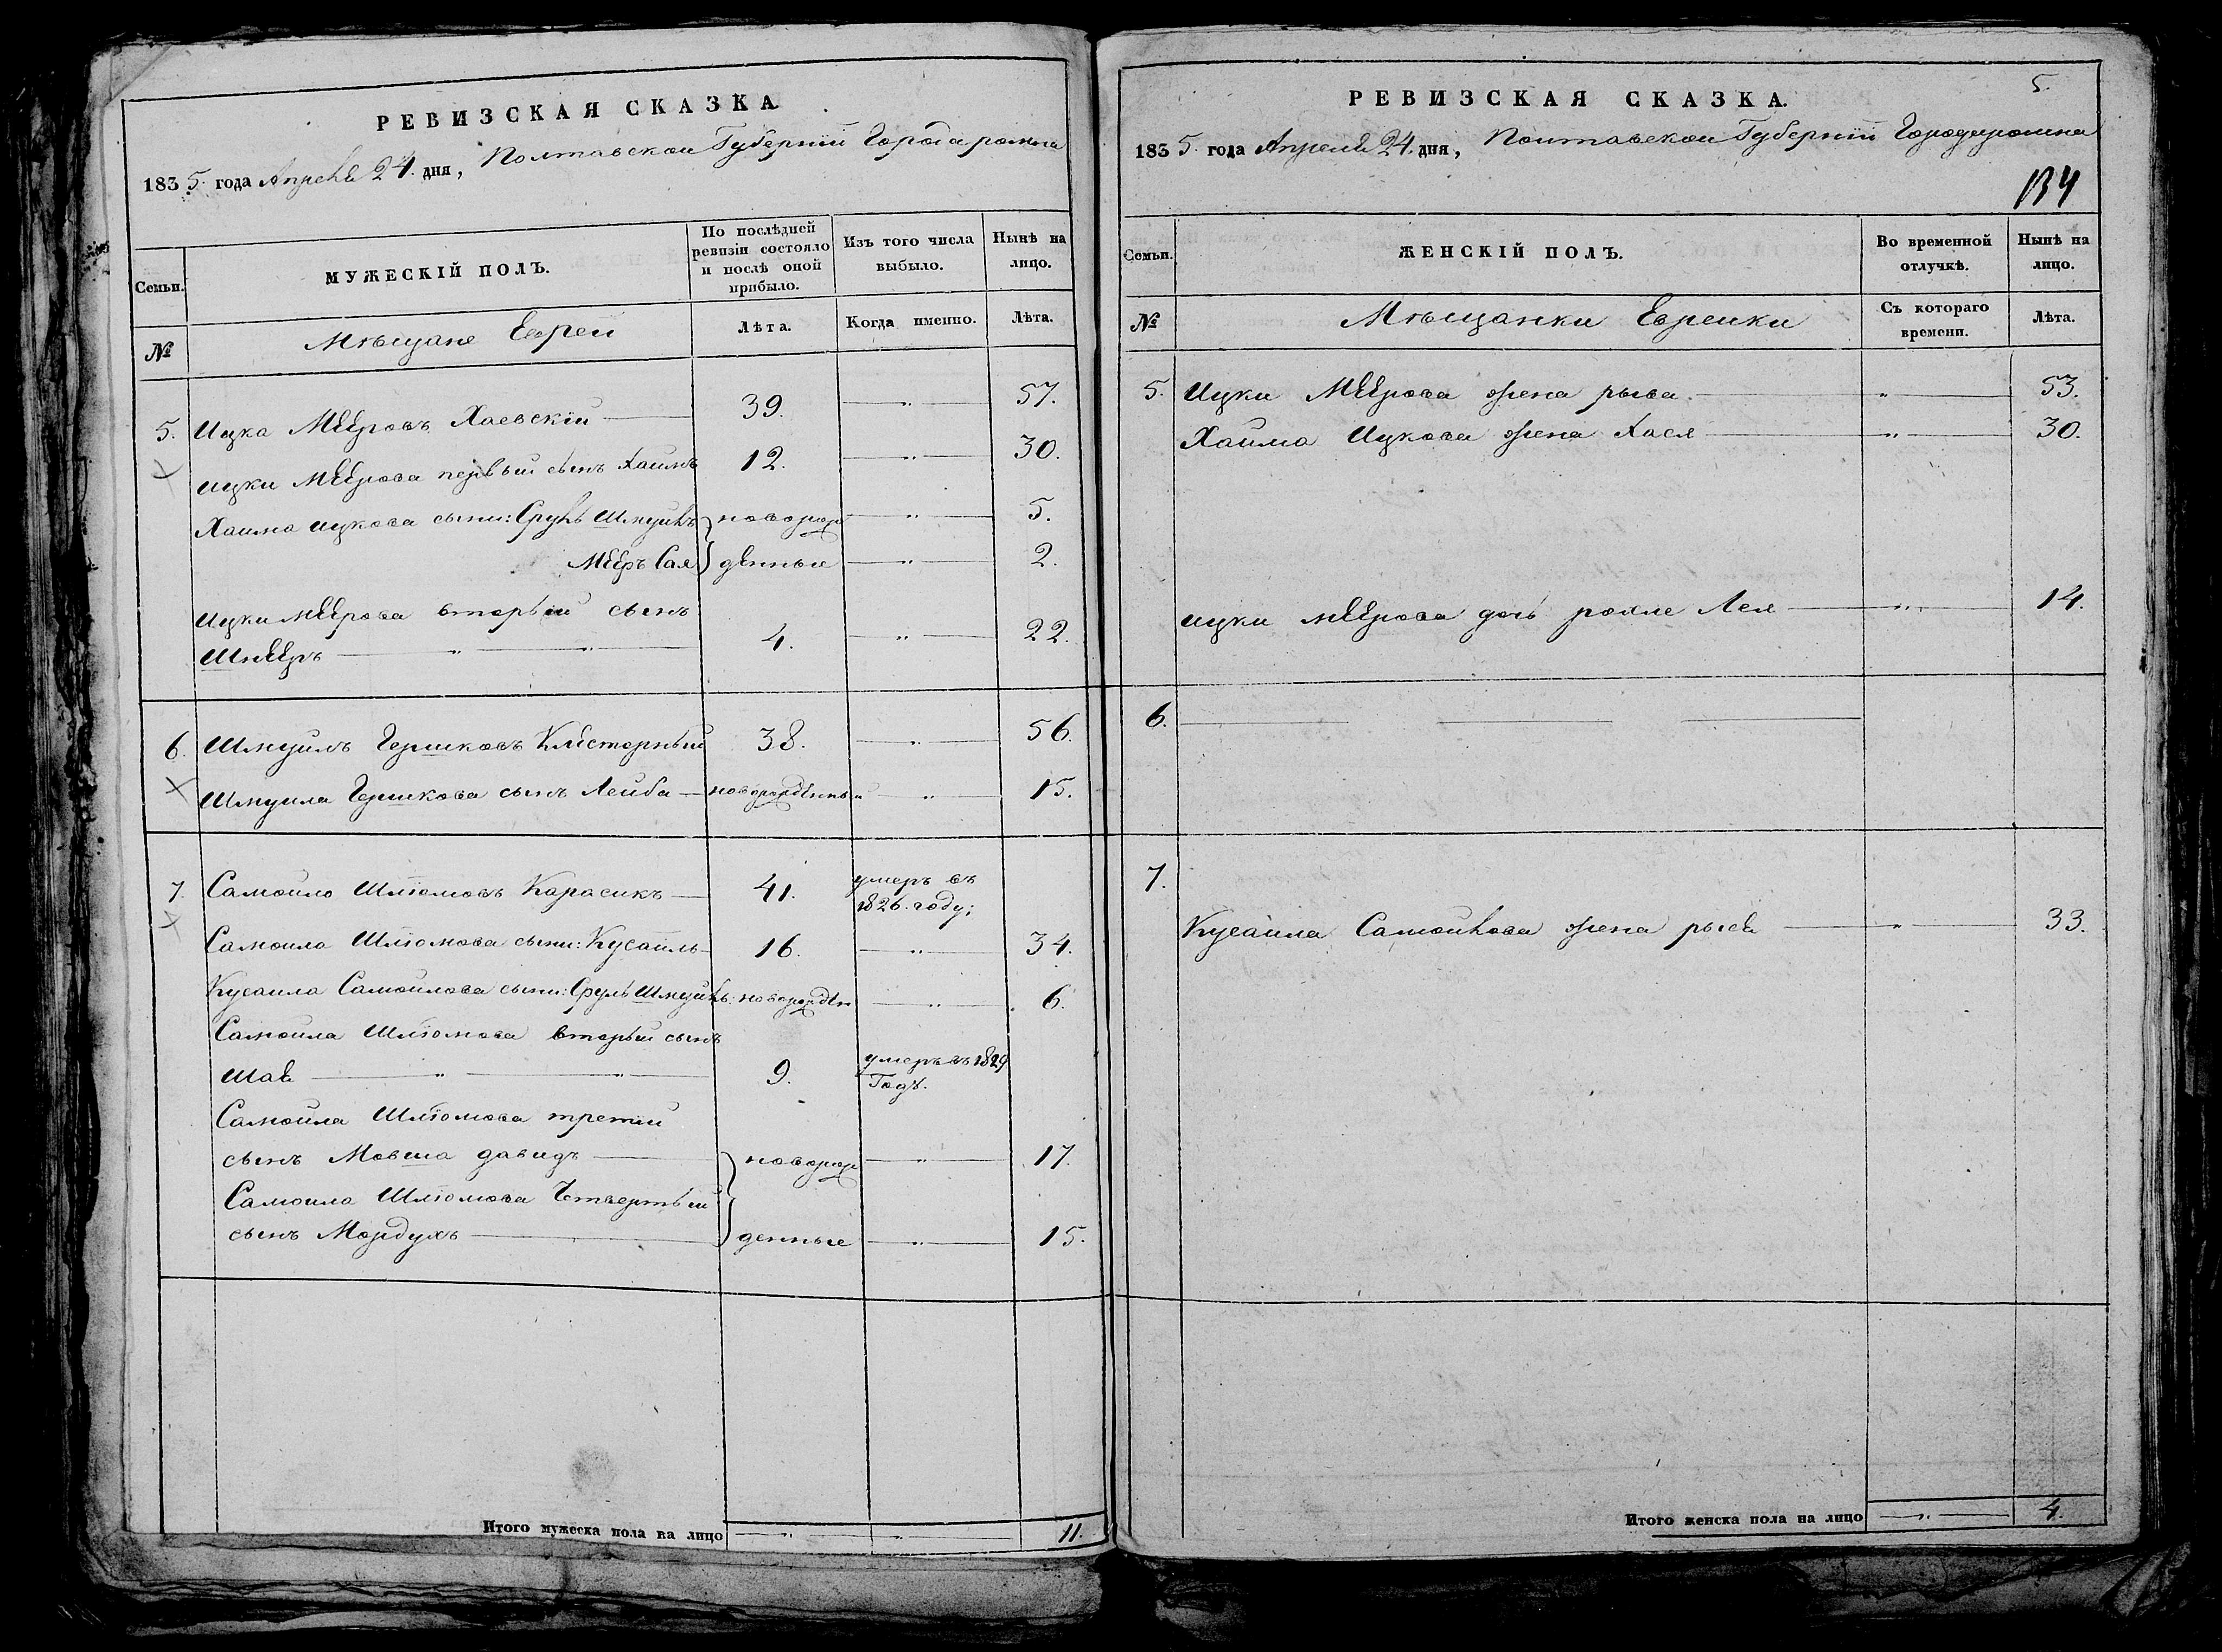 РЕВИЗСКАЯ СКАЗКА
1835. года Апреля 24. дня, Полтавской Губернiи Города ромна
Семьи.
МУЖЕСКІЙ ПОЛЪ.
По послѣдней ревизіи состояло и послѣ оной прибыло.
Изъ того числа выбыло.
Нынѣ на лицо.
№
Мѣщане Евреи
Лѣта.
Когда именно.
Лѣта.
5. Ицка Мееровъ Хаевскiй 39. " 57.
Ицки Меерова первый сынъ Хаимъ 12. " 30.
Хаима Ицкова сыны: Сруль Шмуйль новорож " 5.
Мееръ Сая денные " 2.
Ицки Меерова вторый сынъ
Шнееръ " " 4. " 22.
6. Шмуилъ Гершковъ Клестерный 38. " 56.
Шмуила Гершкова сынъ Лейба новорожденный " 15.
7. Самойло Шлiомовъ Карасикъ 41. умеръ въ
1826. году;
Самоила Шлiомова сыны: Кусаиль 16. " 34.
Кусаила Самойлова сыны: Сруль Шмуйль: новорожден " 6.
Самоила Шлiомова вторый сынъ
Шае " " 9. умеръ въ 1829
Годѣ.
Самойла Шлiомова третiй
сынъ Мовша давидъ новорож " 17.
Самоила Шлiомова Четвертый
сынъ Мордухъ денные " 15.
Итого мужеска пола на лицо " " 11.
5.
РЕВИЗСКАЯ СКАЗКА.
1835. года Апреля 24. дня, Полтавской Губернiи Города ромна
134
Семьи.
ЖЕНСКІЙ ПОЛЪ.
Во временной отлучкѣ.
Нынѣ на лицо.
№
Мѣщанки Еврейки
Съ котораго времени.
Лѣта.
5. Ицки Меерова жена рыва. " 53.
Хаима Ицкова жена Хася " 30.
Ицки меерова дочь рохле Лея " 14.
6.
7.
Кусаила Самойлова жена рыся " 33.
Итого женска пола на лицо " 4.